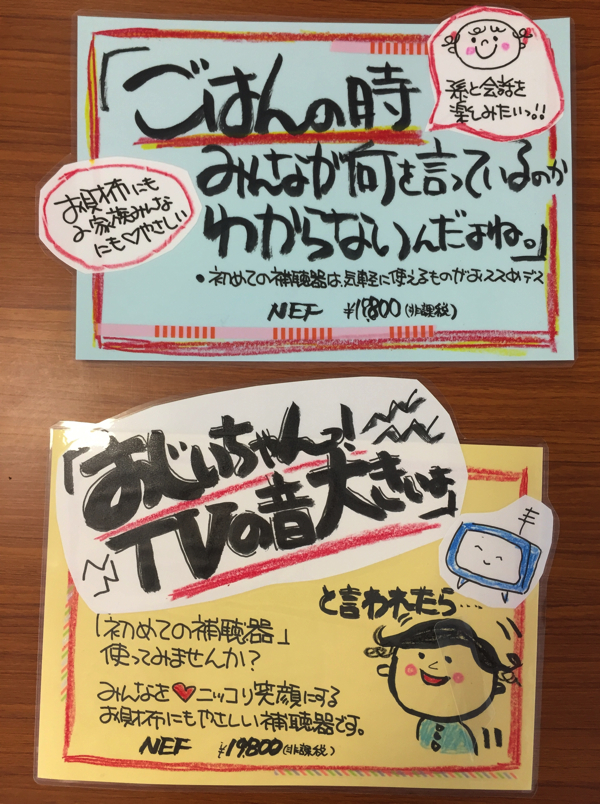 「ごはんの時
みんなが何を言っているのか
わからないんだよね。」
孫と会話を
楽しみたいっ!!
お財布にも
ご家族みんな
にも♡やさしい
• 初めての補聴器は、気軽に使えるものがおススめデス
NEF ¥19,800(非課税)
「おじいちゃんっ!
TVの音大きいよ」
と言われたら…
「初めての補聴器」
使ってみませんか?
みんなを♥ニッコリ笑顔にする
お財布にもやさしい補聴器です。
NEF ¥19800(非課税)